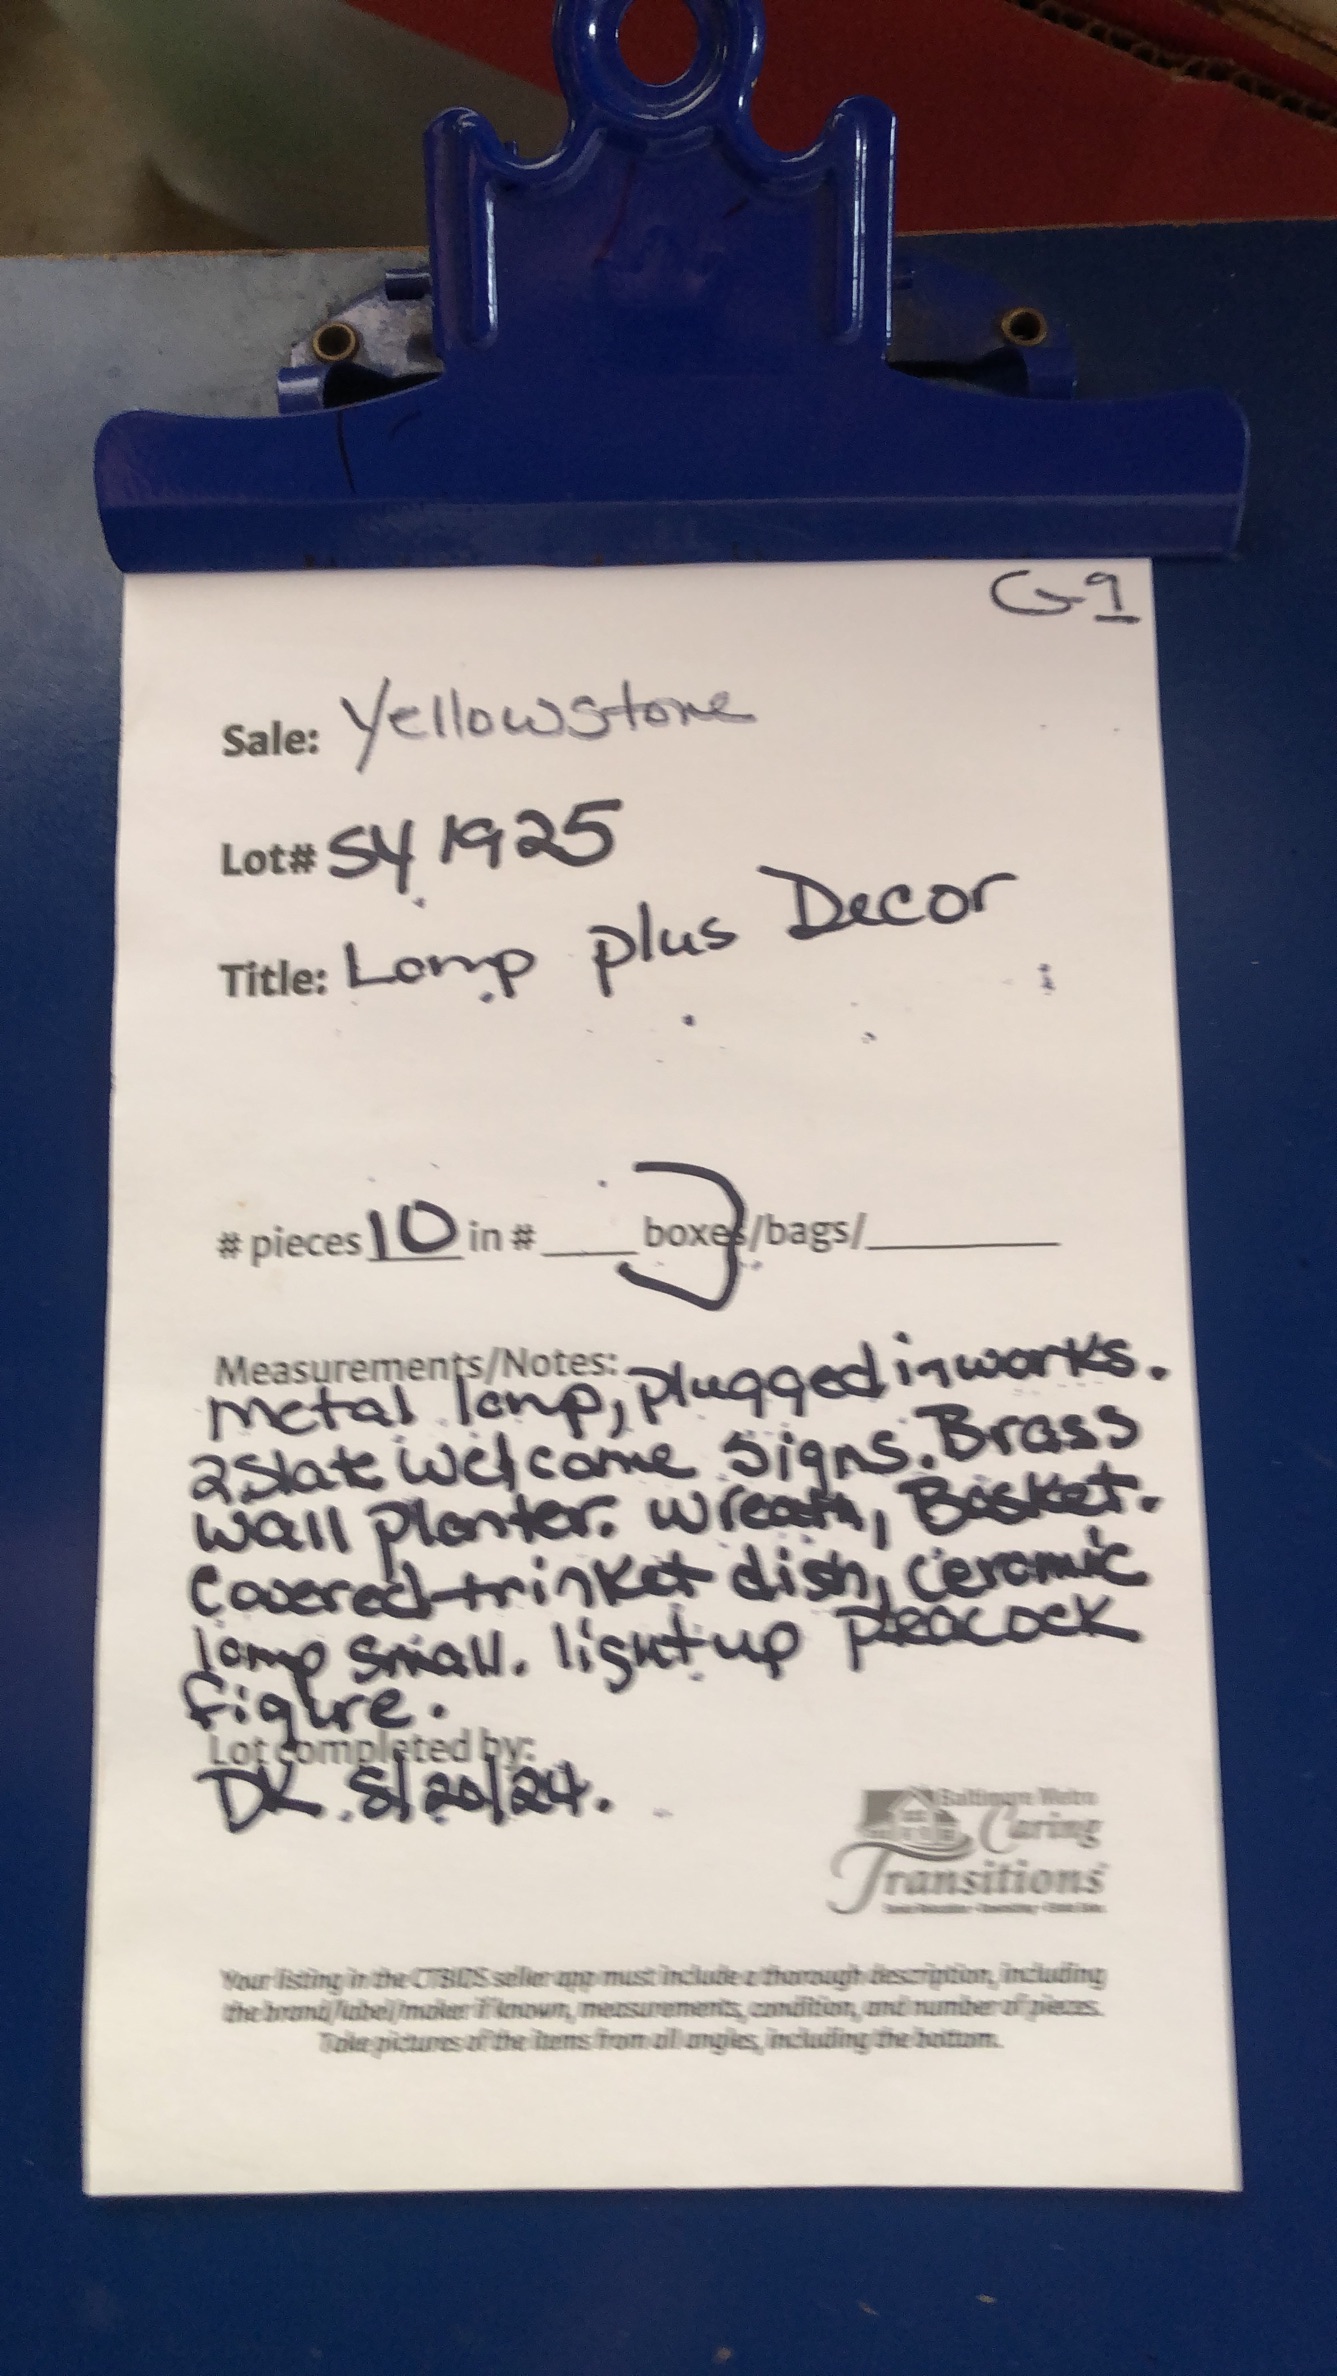 G-9
Sale: Yellowstone
Lot# SY 1925
Title: Lamp plus Decor
# pieces 10 in # ____ boxes/bags/________
Measurements/Notes: plugged in works.
metal lamp,
2 Slate welcome signs. Brass
wall planter. wreath, Basket.
Covered trinket dish, ceramic
lamp small. light up peacock
figure.
Lot completed by:
DK. 8/20/24.
Baltimore Metro
Caring
Transitions
Your listing in the CTBIDS seller app must include a thorough description, including
the brand/label/maker if known, measurements, condition, and number of pieces.
Take pictures of the items from all angles, including the bottom.